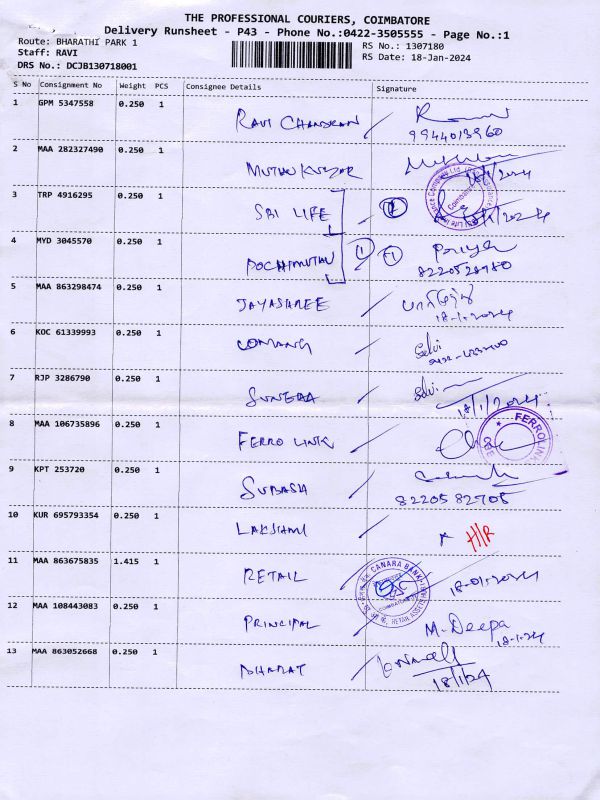 THE PROFESSIONAL COURIERS, COIMBATORE
Delivery Runsheet - P43 - Phone No.:0422-3505555 - Page No.:1
Route: BHARATHI PARK 1
RS No.: 1307180
Staff: RAVI
RS Date: 18-Jan-2024
DRS No.: DCJB130718001
S No Consignment No Weight PCS Consignee Details Signature
1 GPM 5347558 0.250 1 RAVI CHANDRAN
9944013960
2 MAA 282327490 0.250 1 MUTHU KUMAR
3 TRP 4916295 0.250 1 SBI LIFE
4 MYD 3045570 0.250 1 POCHIMUTHU 1 Priya
8220528980
5 MAA 863298474 0.250 1 JAYASHREE
18-1-2024
6 KOC 61339993 0.250 1 Selvi
7 RJP 3286790 0.250 1 Selvi
18/1/2024
8 MAA 106735896 0.250 1 FERRO LINK
FERROLINK
9 KPT 253720 0.250 1 SUBASH
8220582705
10 KUR 695793354 0.250 1 LAKSHMI H/R
11 MAA 863675835 1.415 1 RETAIL CANARA BANK 18-01-2024
12 MAA 108443083 0.250 1 PRINCIPAL M. Deepa
18-1-24
13 MAA 863052668 0.250 1 BHARAT
18/1/24